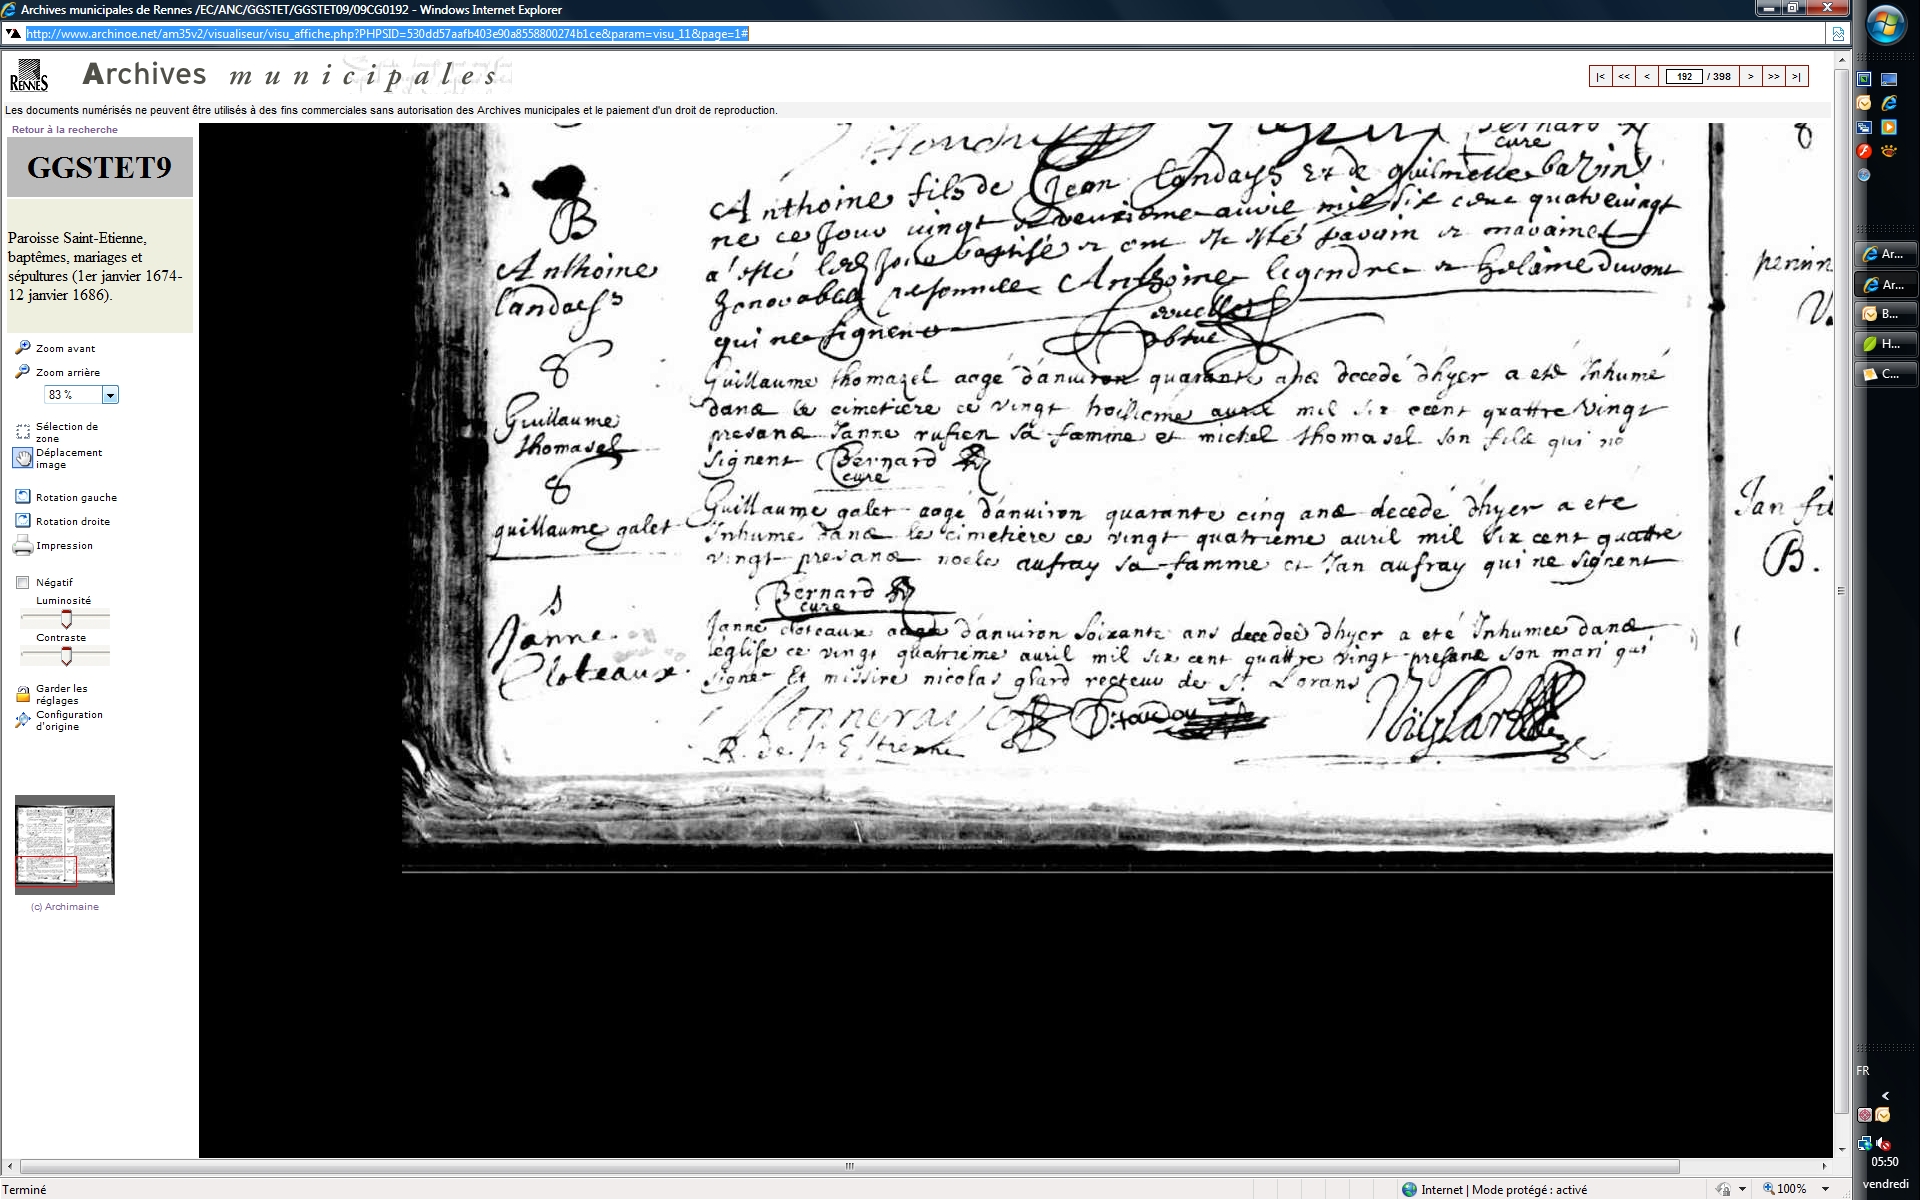 Archives municipales de Rennes /EC/ANC/GGSTET/GGSTET09/09CG0192 - Windows Internet Explorer
http://www.archinoe.net/am35v2/visualiseur/visu_affiche.php?PHPSID=530dd57aafb403e90a8558800274b1ce&param=visu_11&page=1#
RENNES
Archives municipales
|< << < 192 / 398 > >> >|
Les documents numérisés ne peuvent être utilisés à des fins commerciales sans autorisation des Archives municipales et le paiement d'un droit de reproduction.
Retour à la recherche
GGSTET9
Paroisse Saint-Etienne,
baptêmes, mariages et
sépultures (1er janvier 1674-
12 janvier 1686).
Zoom avant
Zoom arrière
83 %
Sélection de
zone
Déplacement
image
Rotation gauche
Rotation droite
Impression
Négatif
Luminosité
Contraste
Garder les
réglages
Configuration
d'origine
(c) Archimaine
Bernard
cure
B
Anthoine
Landays
Anthoine fils de Jean Landays et de guilmette bazin
ne ce jour vingt deuxieme avril mil six cent quatrevingt
a esté led jour baptisé et ont esté parain et maraine
honorables personnes Anthoine legendre et helaine duvant
qui ne signent
Guillaume
thomasel
Guillaume thomasel aagé d'anuiron quarante ans decedé d'hyer a eté Inhumé
dans le cimetiere ce vingt troisieme auril mil six cent quattre vingt
presans Janne rufien sa famme et michel thomasel son fils qui ne
signent Bernard
cure
guillaume galet
Guillaume galet aagé d'anuiron quarante cinq ans decedé d'hyer a eté
Inhumé dans le cimetiere ce vingt quatrieme auril mil six cent quattre
vingt presans noele aufray sa famme et Jan aufray qui ne signent
Bernard
cure
S
Janne
Cloteaux
Janne cloteaux aagée d'anuiron soixante ans decedeé d'hyer a eté Inhumeé dans
l'église ce vingt quatrieme auril mil six cent quattre vingt presans son mari qui
signe Et missire nicolas glard recteur de St Lorans
Monneraye
R. de St Estienne
perin
Jan fi
B.
Ar...
Ar...
B...
H...
C...
FR
05:50
vendredi
Terminé
Internet | Mode protégé : activé
100%